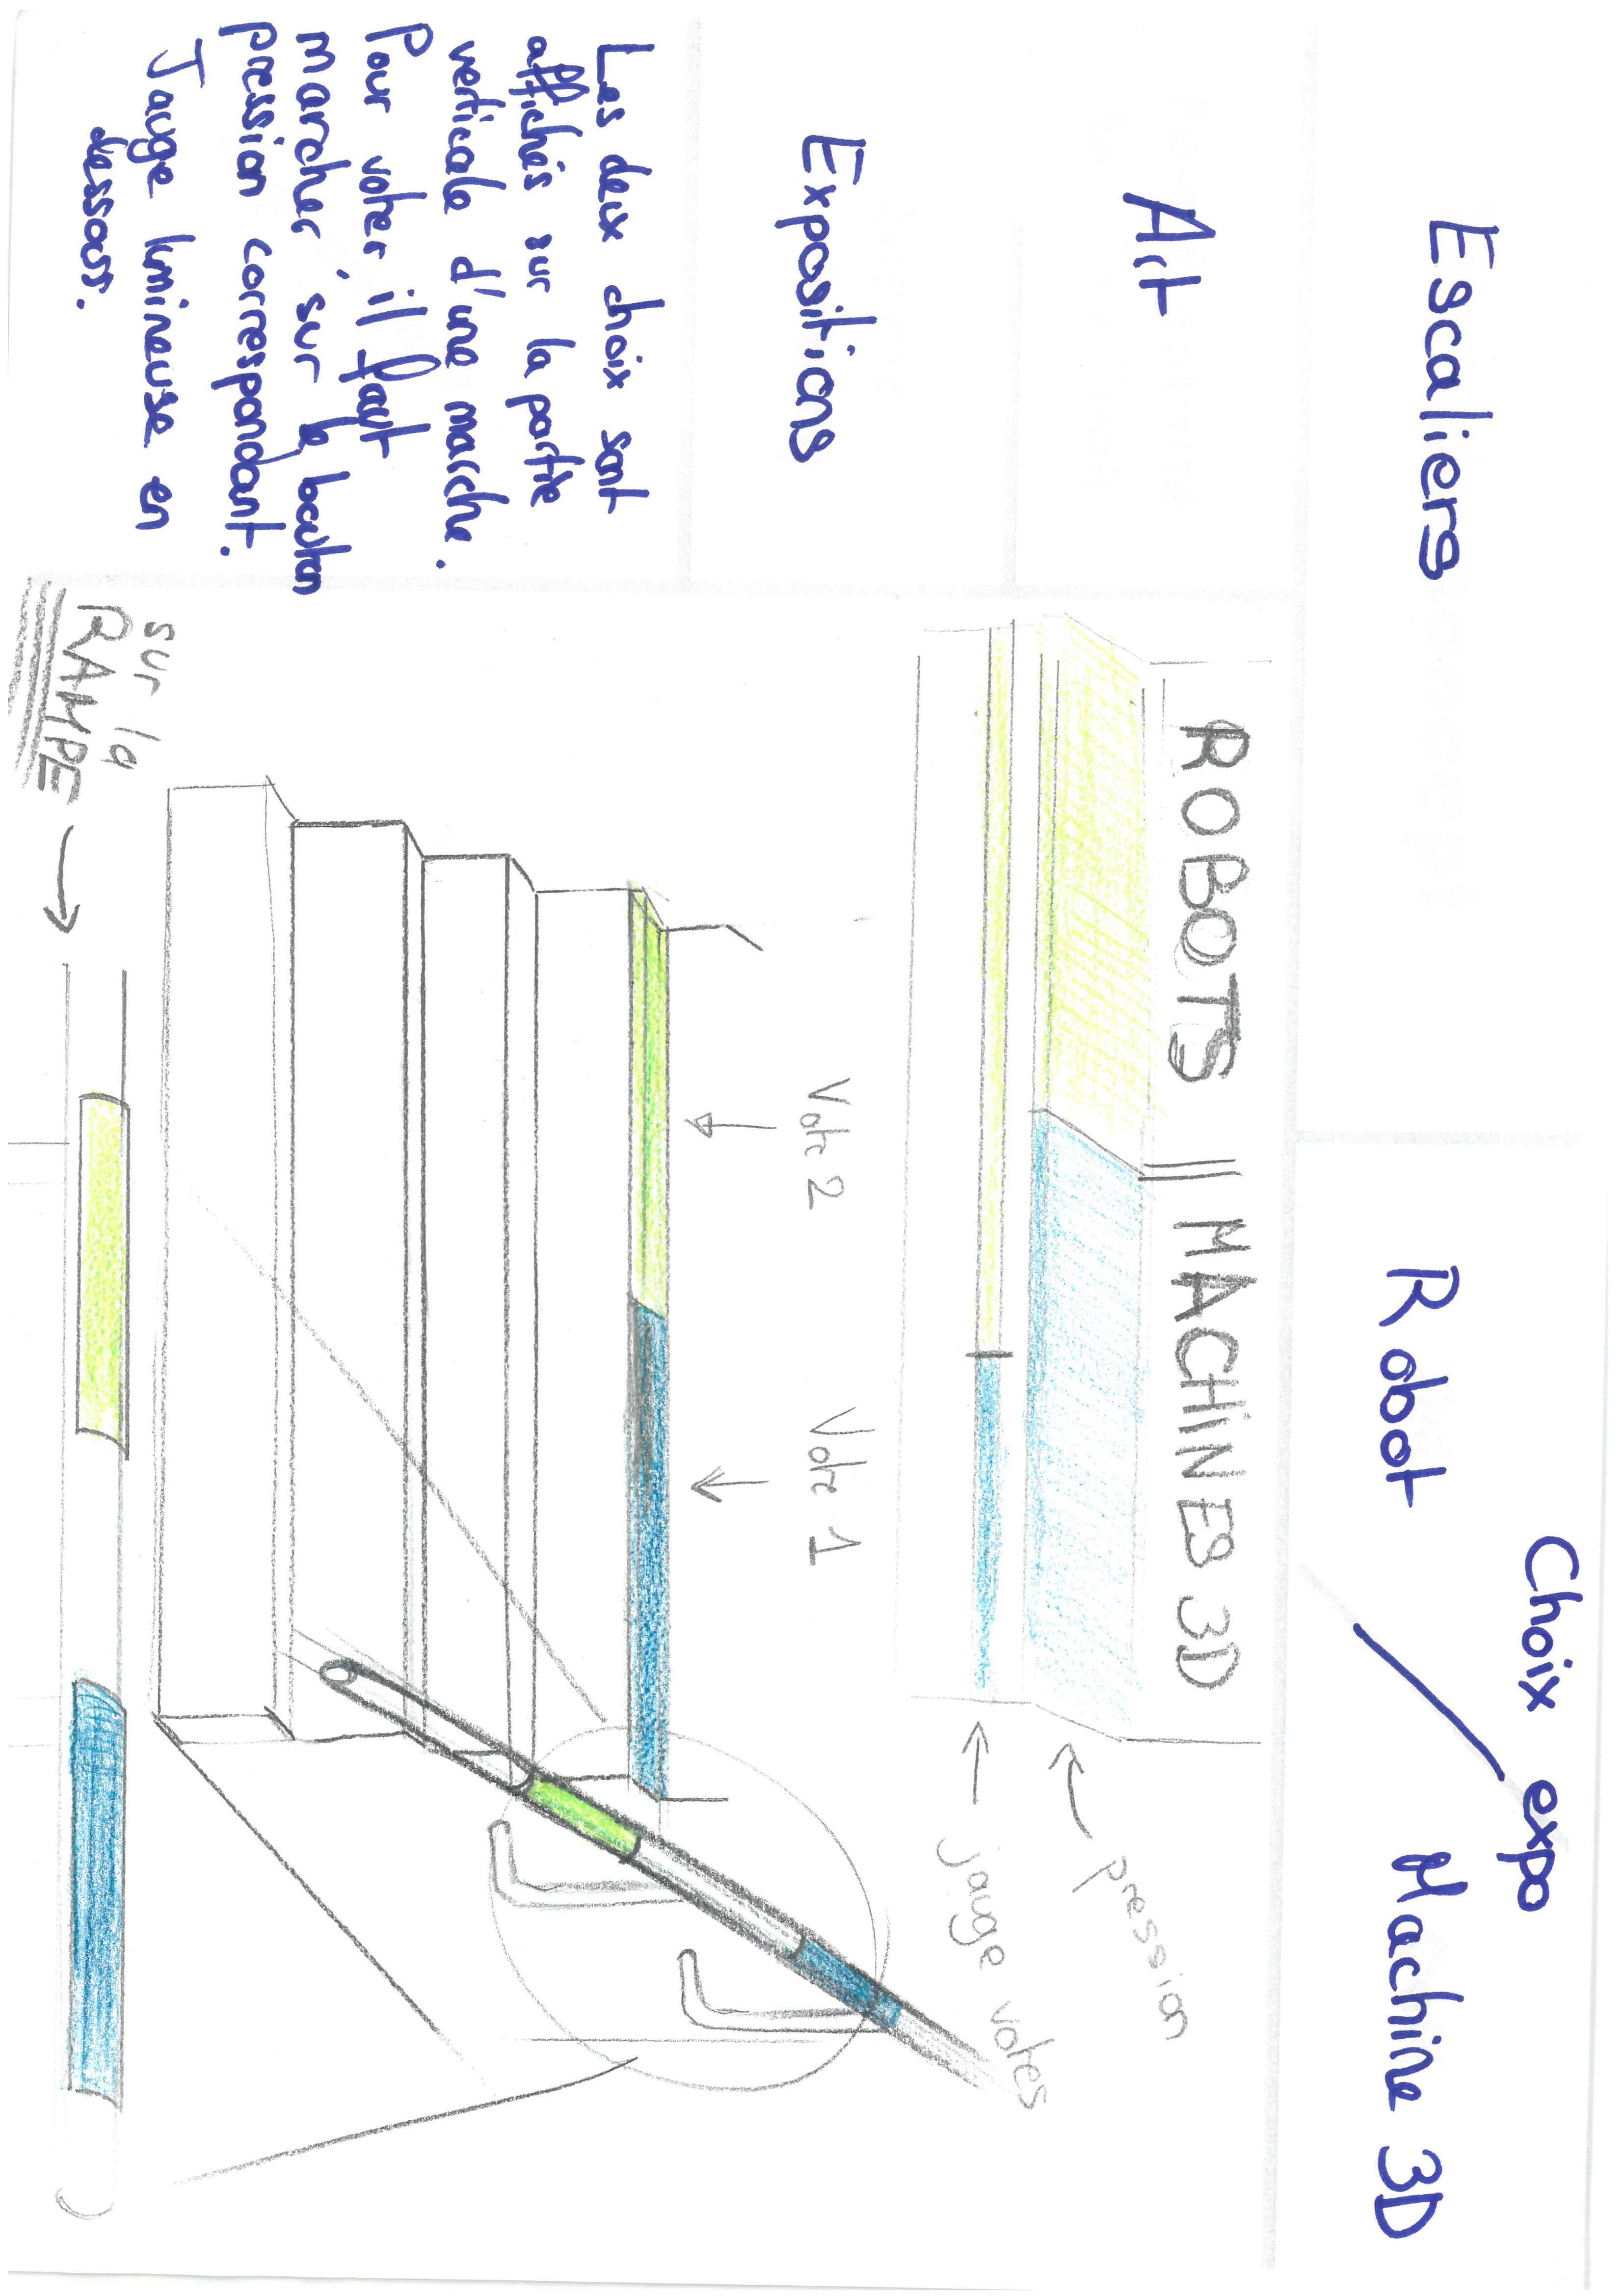 Escaliers
Choix expo
Robot / Machine 3D
Art
Expositions
Les deux choix sont
affichés sur la partie
verticale d'une marche.
Pour voter, il faut
marcher sur le bouton
pression correspondant.
Jauge lumineuse en
dessous.
ROBOTS || MACHINES 3D
pression
jauge votes
Vote 2
Vote 1
sur la
RAMPE